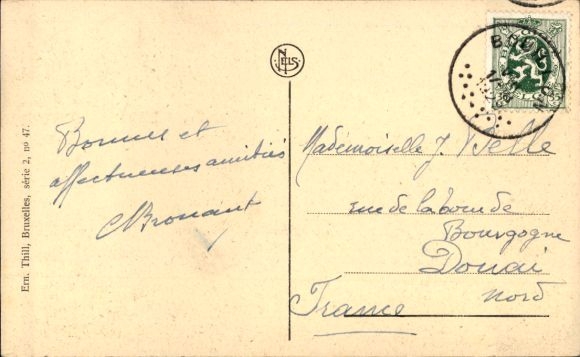 NELS
Ern. Thill, Bruxelles, série 2, nº 47.
Bonnes et
affectueuses amitiés
Mademoiselle J.
rue de la
Bourgogne
Douai
Nord
France